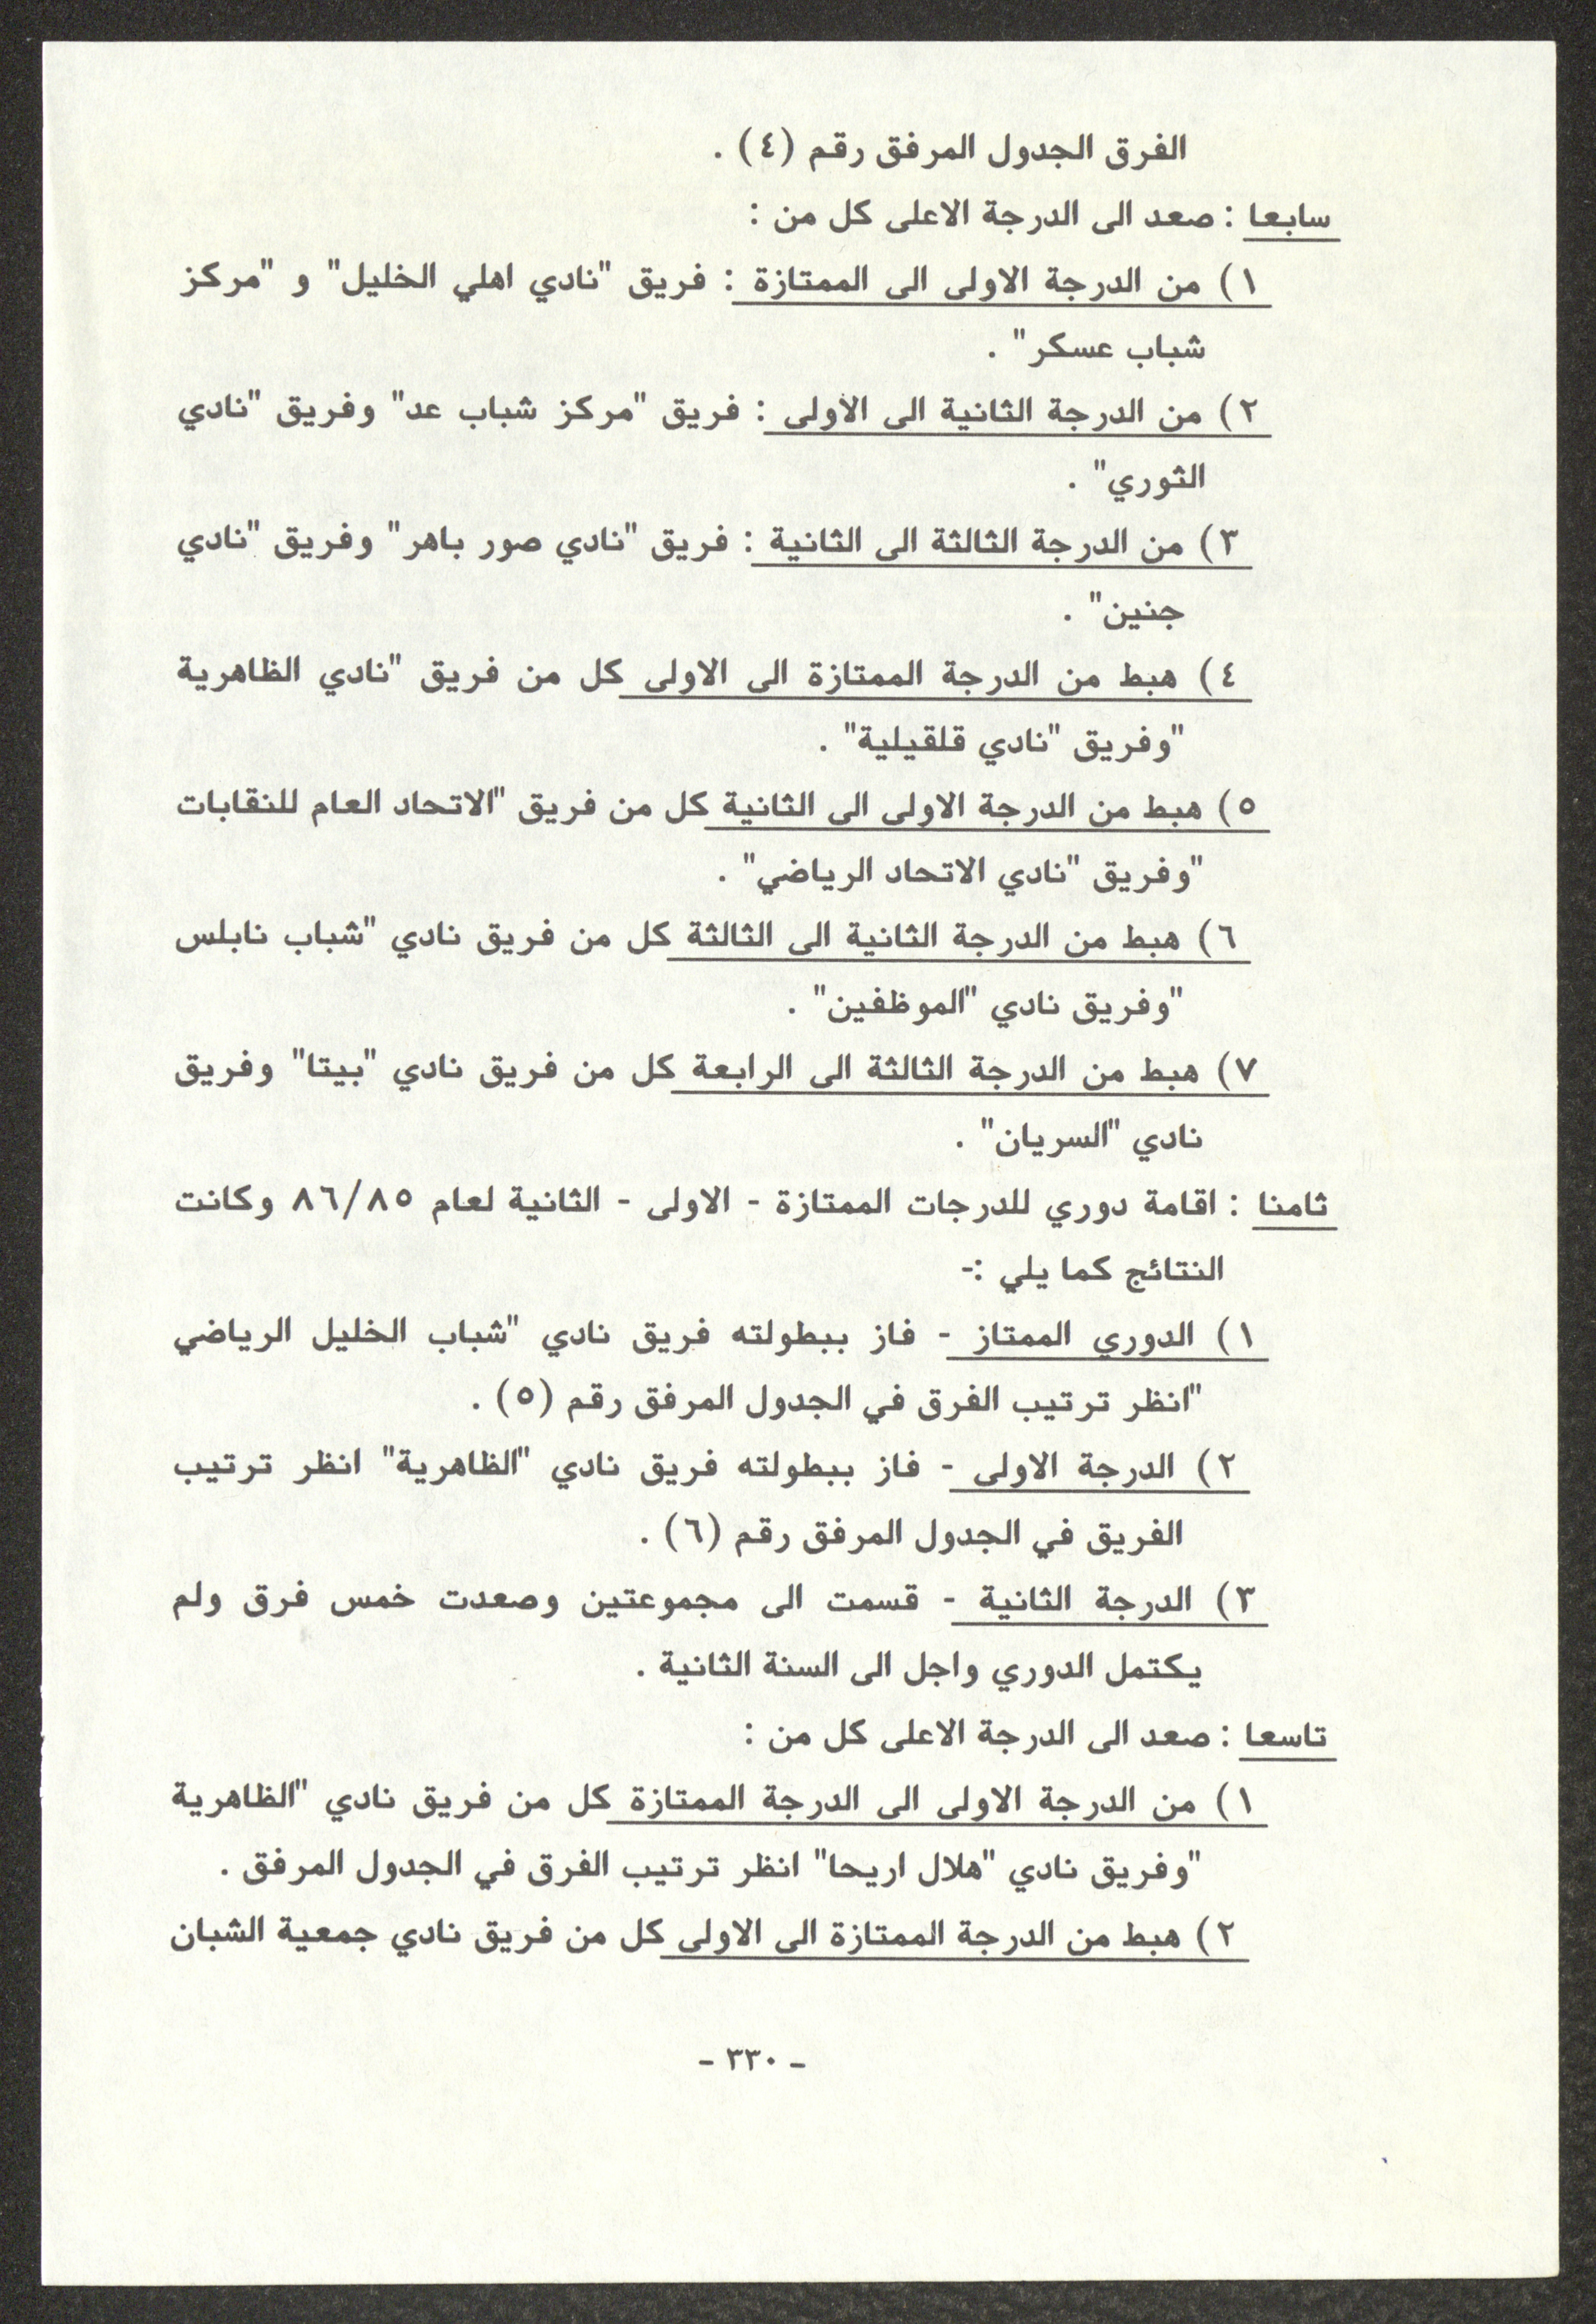 الفرق الجدول المرفق رقم (٤) .
سابعا : صعد الى الدرجة الاعلى كل من :
١) من الدرجة الاولى الى الممتازة : فريق "نادي اهلي الخليل" و "مركز
شباب عسكر" .
٢) من الدرجة الثانية الى الأولى : فريق "مركز شباب عد" وفريق "نادي
الثوري" .
٣) من الدرجة الثالثة الى الثانية : فريق "نادي صور باهر" وفريق "نادي
جنين" .
٤) هبط من الدرجة الممتازة الى الاولى كل من فريق "نادي الظاهرية
"وفريق "نادي قلقيلية" .
٥) هبط من الدرجة الاولى الى الثانية كل من فريق "الاتحاد العام للنقابات
"وفريق "نادي الاتحاد الرياضي" .
٦) هبط من الدرجة الثانية الى الثالثة كل من فريق نادي "شباب نابلس
"وفريق نادي "الموظفين" .
٧) هبط من الدرجة الثالثة الى الرابعة كل من فريق نادي "بيتا" وفريق
نادي "السريان" .
ثامنا : اقامة دوري للدرجات الممتازة - الاولى - الثانية لعام ٨٦/٨٥ وكانت
النتائج كما يلي :-
١) الدوري الممتاز - فاز ببطولته فريق نادي "شباب الخليل الرياضي
"انظر ترتيب الفرق في الجدول المرفق رقم (٥) .
٢) الدرجة الاولى - فاز ببطولته فريق نادي "الظاهرية" انظر ترتيب
الفريق في الجدول المرفق رقم (٦) .
٣) الدرجة الثانية - قسمت الى مجموعتين وصعدت خمس فرق ولم
يكتمل الدوري واجل الى السنة الثانية .
تاسعا : صعد الى الدرجة الاعلى كل من :
١) من الدرجة الاولى الى الدرجة الممتازة كل من فريق نادي "الظاهرية
"وفريق نادي "هلال اريحا" انظر ترتيب الفرق في الجدول المرفق .
٢) هبط من الدرجة الممتازة الى الاولى كل من فريق نادي جمعية الشبان
- ٣٣٠ -